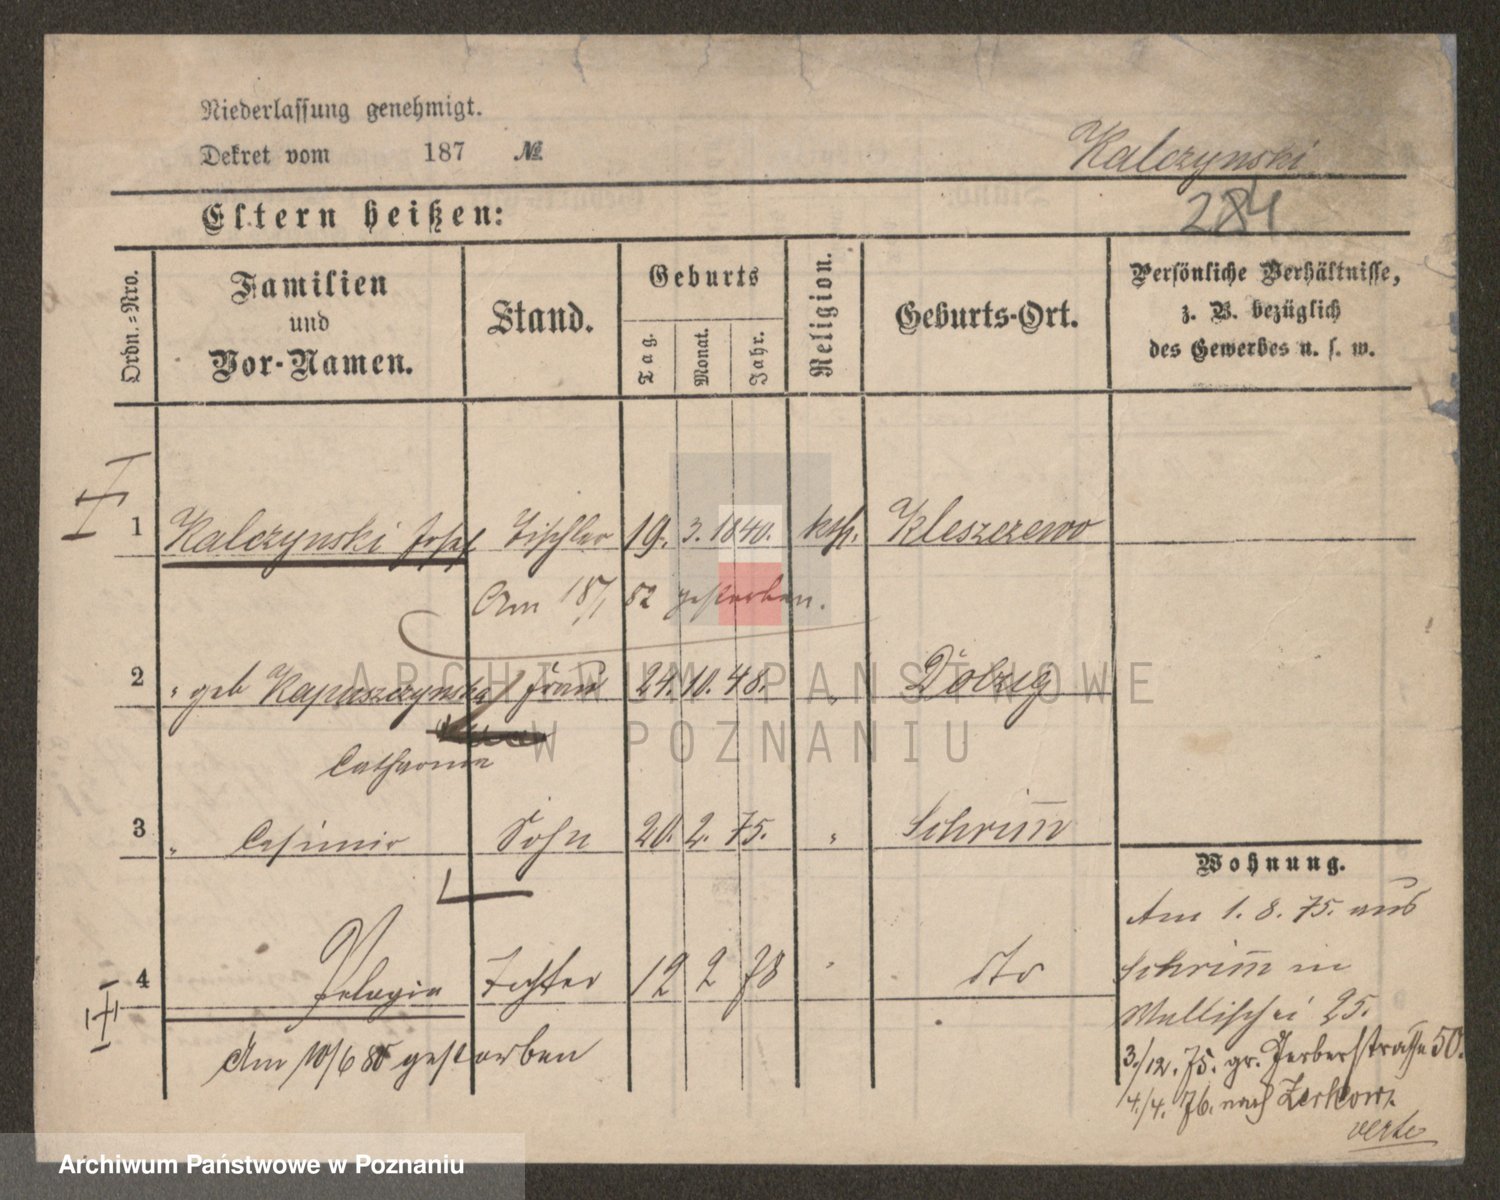 Niederlassung genehmigt.
Dekret vom 187 №
Kalczynski
284
Eltern heißen:
Ordn.-Nro.
Familien
und
Vor-Namen.
Stand.
Geburts
Tag.
Monat.
Jahr.
Religion.
Geburts-Ort.
Persönliche Verhältnisse,
z. B. bezüglich
des Gewerbes u. s. w.
1 Kalczynski Josef Tischler 19. 3. 1840. kth. Kleszczewo
Am 18/1 82 gestorben.
2 " geb Kapuszczynska Frau 24. 10. 48. " Dolzig
Catharina
3 " Casimir Sohn 20. 2. 75. " Schrim̅
4 Pelagia Tochter 12 2 78 " dto
Am 10/6 80 gestorben
Wohnung.
Am 1. 8. 75. aus
Schrim̅ in
Wallischei 25.
3./12. 75. gr. Gerberstraße 50.
4./4. 76. nach Zerkow.
verte
ARCHIWUM PAŃSTWOWE
W POZNANIU
Archiwum Państwowe w Poznaniu